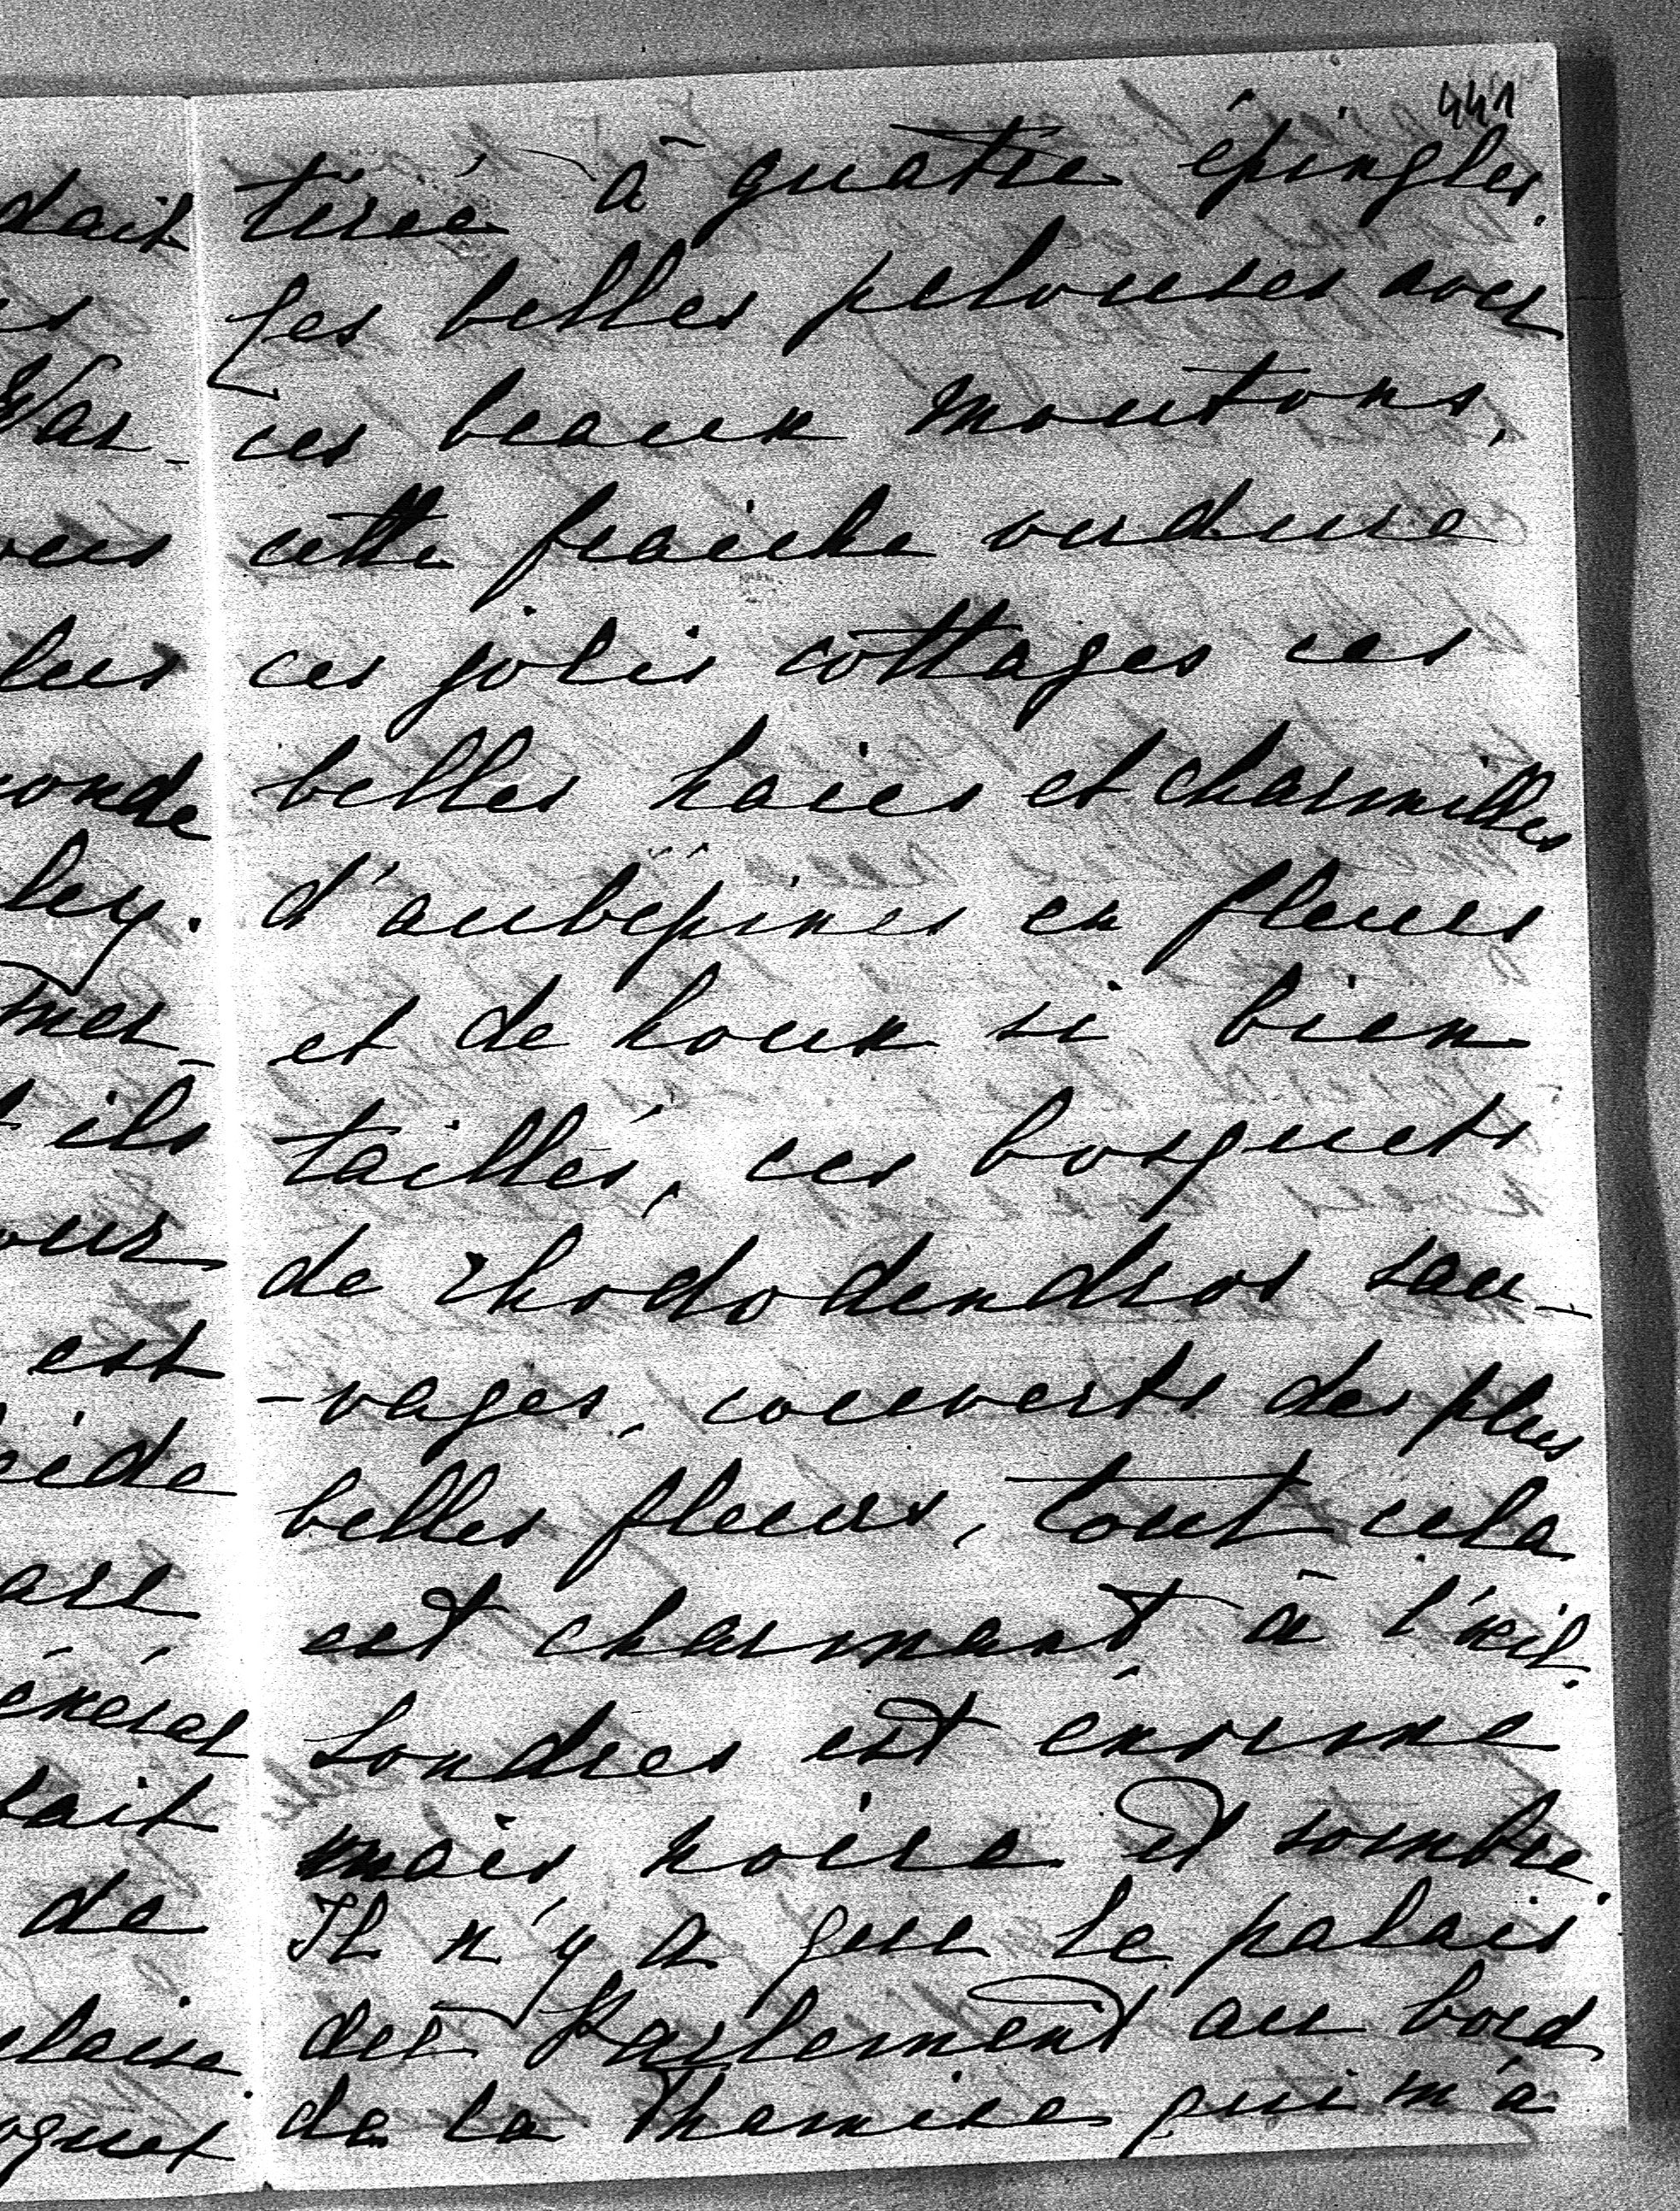 dait
es
War-
vous
lus
monde
ley.
mer-
t ils
our
est
eide
are
énéral
tait
de
elouse.
oquet
441
tiré à quatre épingles.
Les belles pelouses avec
ces beaux moutons,
cette fraiche verdure
ces jolis cottages ces
belles haies et charmilles
d'aubépines en fleurs
et de houx si bien
taillés, ces bosquets
de rhododendros sau-
-vages, couverts des plus
belles fleurs, tout cela
est charmant à l'œil.
Londres est énorme
mais noire et sombre.
Il n'y a que le palais
du Parlement au bord
de la Thamise qui m'a